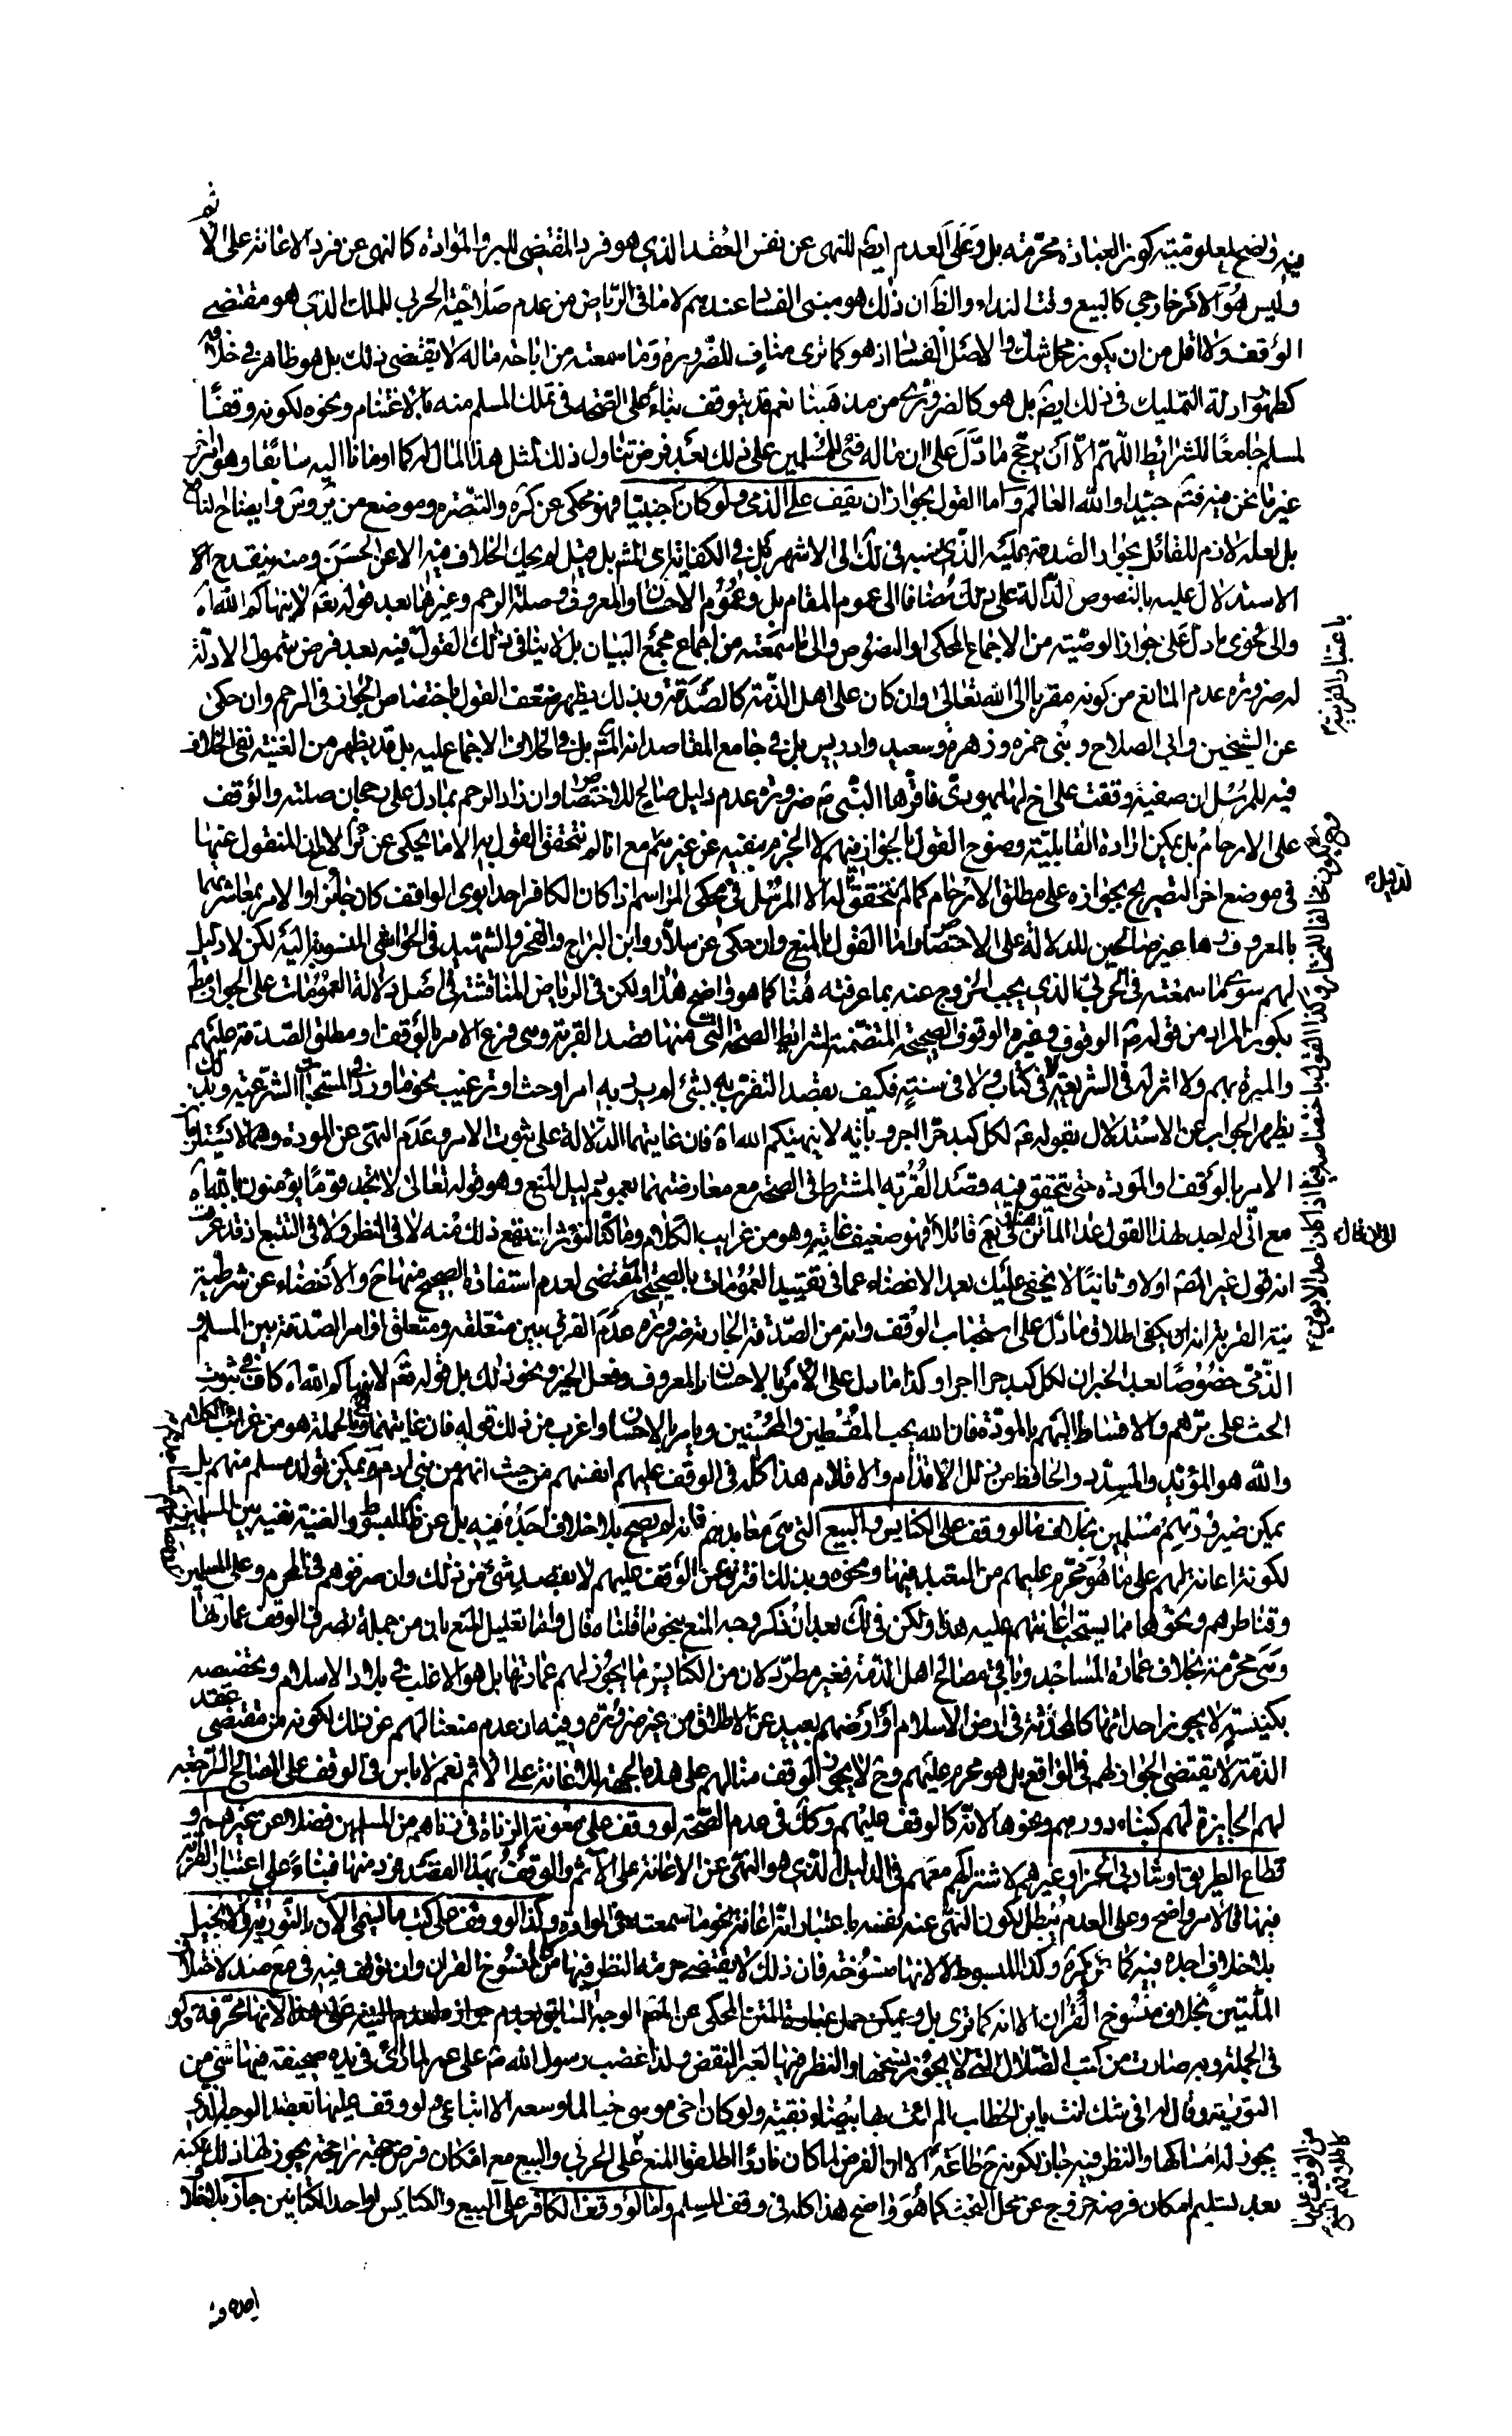 فيه واضح لمعلومية كون العبادة محرمة بل وعلى العدم ايضا للنهى عن نفس العقد الذي هو فرد المقتضى للبر والموادة كالنهى عن فرد الاعانة على الاثم
وليس هو لامر خارجي كالبيع وقت النداء والظ ان ذلك هو مبنى الفساد عندهم لا ما فى الرياض من عدم صلاحية الحربي للملك الذي هو مقتضى
الوقف ولا اقل من ان يكون محل شك والاصل الفساد اذ هو كما ترى مناف للضرورة وما سمعته من اباحة ماله لا يقتضى ذلك بل هو ظاهر في خلافه
كظهور ادلة التمليك فى ذلك ايضا بل هو كالضرورى من مذهبنا نعم قد يتوقف بناء على الصحة فى تملك المسلم منه بالاغتنام ونحوه لكونه وقفا
لمسلم جامعا للشرائط اللهم الا ان يرجح ما دل على ان ماله فئ للمسلمين على ذلك بعد فرض تناول ذلك لمثل هذا المال له كما اومأنا اليه سابقا وهو امر اخر
غير ما نحن فيه فتم جيدا والله العالم واما القول بجواز ان يقف على الذمى ولو كان اجنبيا فهو محكى عن كره والتبصرة وموضع من ير وش وايضاح النافع
بل لعله لازم للقائل بجواز الصدقة عليه الذى نسبه فى لك الى الاشهر بل في الكفاية الى المشهور بل قيل لم يحك الخلاف فيه الا عن الحسن ومنه ينقدح
الاستدلال عليه بالنصوص الدالة على ذلك مضافا الى عموم المقام بل وعموم الاحسان والمعروف وصلة الرحم وغيرها بعد قوله تعالى لا ينهاكم الله اه
والى فحوى ما دل على جواز الوصية من الاجماع المحكى والنصوص والى ما سمعته من اجماع مجمع البيان بل لا ينافى ذلك القول فيه بعد فرض شمول الادلة
له ضرورة عدم المانع من كونه مقربا الى الله تعالى وان كان على اهل الذمة كالصدقة وبذلك يظهر ضعف القول باختصاص الجواز فى الرحم وان حكى
عن الشيخين وابى الصلاح وبنى حمزة وزهرة وسعيد وادريس بل في جامع المقاصد انه المشهور بل في الخلاف الاجماع عليه بل قد يظهر من الغنية نفى الخلاف
فيه للمرسل ان صفية وقفت على اخ لها يهودى فاقرها النبى ص ضرورة عدم دليل صالح للاختصاص وان زاد الرحم بما دل على رجحان صلته والوقف
على الارحام بل يمكن ارادة القابلية وضوح القول بالجواز فيهم لا الجزم بنفيه عن غيرهم مع انا لم نتحقق القول به الا ما يحكى عن ئر الا ان المنقول عنها
فى موضع اخر التصريح بجوازه على مطلق الارحام كما لم نتحقق له الا المرسل فى محكى المراسم اذا كان الكافر احد ابوى الواقف كان جائزا والامر بمعاشرتهما
بالمعروف وها غير صالحين للدلالة على الاختصاص واما القول بالمنع وان حكى عن سلار وابن البراج والفخر والشهيد فى الحواشى المنسوبة اليه لكن لا دليل
لهم سوى ما سمعته فى الحربي الذي يجب الخروج عنه بما عرفته هنا كما هو واضح هذا ولكن فى الرياض المناقشة فى اصل دلالة العمومات على الجواز
بكون المراد من قوله ع الوقوف وغيره الوقوف الصحيحة المتضمنة لشرائط الصحة التى منها قصد القربة وهى فرع الامر بالوقف او مطلق الصدقة عليهم
والمبرة بهم ولا اثر له فى الشريعة لا فى كتاب ولا فى سنة فكيف يقصد التقرب به بشئ لم يرد به امر او حث او ترغيب نحو ما ورد فى المستحبات الشرعية وبذلك
يظهر الجواب عن الاستدلال بقوله ع لكل كبد حرا اجر وباية لا ينهيكم الله اه فان غايتهما الدلالة على ثبوت الاجر وعدم النهى عن المودة وهما لا يستلزمان
الامر بالوقف والمودة حتى يتحقق فيه قصد القربة المشترط فى الصحة مع معارضتهما بعموم دليل المنع وهو قوله تعالى لا تجد قوما يؤمنون بالله اه
مع انى لم اجد لهذا القول عدا الماتن هنا وفى يع قائلا فهو ضعيف غايته وهو من غرايب الكلام وما كنا لنؤثر ان يقع ذلك منه لا فى النظر ولا فى التتبع اذ قد عرفت
انه قول غير المصنف اولا وثانيا لا يخفى عليك بعد الاغضاء عما فى تقييد العمومات بالصحيحة المقتضى لعدم استفادة الصحيح منها ح والاغضاء عن شرطية
نية القربة انه يكفى اطلاق ما دل على استحباب الوقف وانه من الصدقة الجارية ضرورة عدم الفرق بين متعلقه ومتعلق اوامر الصدقة بين المسلم و
الذمى خصوصا بعد الخبر ان لكل كبد حرا اجرا وكذا ما دل على الامر بالاحسان والمعروف وفعل الخير ونحو ذلك بل قوله تعم لا ينهاكم الله اه كاف في ثبوت
الحث على برهم والاقساط اليهم بالمودة فان الله يحب المقسطين والمحسنين ويامر بالاحسان واغرب من ذلك قوله فان غايتهما وبالجملة هو من غرائب الكلام
والله هو المؤيد والمسدد والحافظ من زلل الاقدام والاقلام هذا كله فى الوقف عليهم انفسهم من حيث انهم من بنى ادم ويمكن تولد مسلم منهم بل
يمكن صيرورتهم مسلمين بخلاف ما لو وقف على الكنايس والبيع التى هى معابدهم فانه لم يصح بلا خلاف اجده فيه بل عن ظ المبسوط والغنية نفيه بين المسلمين
لكونه اعانة لهم على ما هو محرم عليهم من التعبد فيها ونحوه وبذلك افترق عن الوقف عليهم لا بقصد شئ من ذلك وان صرفوهم فى المحرم وعلى المسلمين
وقناطرهم ونحوها مما يستحب اعانتهم عليه هذا ولكن فى لك بعد ان ذكر وجه المنع بنحو ما قلناه قال واما تعليل المنع بان من جملة مصرف الوقف عمارتها
وهى محرمة بخلاف عمارة المساجد وباقى مصالح اهل الذمة فغير مطرد لان من الكنايس ما يجوز لهم عمارتها بل هو الاغلب في بلاد الاسلام وتخصيصه
بكنيسة لا يجوز احداثها كالمحدثة فى ارض الاسلام او ارضهم بعيد عن الاطلاق من غير ضرورة وفيه ان عدم منعنا لهم عن ذلك لكونه من مقتضى عقد
الذمة لا يقتضى الجواز لهم فى الواقع بل هو محرم عليهم وح لا يجوز الوقف منا لهم على هذه الجهة للاعانة على الاثم نعم لا باس فى الوقف على المصالح الراجعة
لهم الجايزة لهم كبناء دورهم ونحوها لانه كالوقف عليهم وكذا فى عدم الصحة لو وقف على معونة الزناة فى زناهم من المسلمين فضلا عن غيرهم و
قطاع الطريق او شاربى الخمر او غيرهم لاشتراكهم معهم فى الدليل الذى هو النهى عن الاعانة على الاثم والوقف بهذا القصد فرد منها فبناء على اعتبار القربة
فيها فالامر واضح وعلى العدم يبطل لكون النهى عنه لنفسه باعتبار انه اعانة نحو ما سمعته فى الموادة وكذا لو وقف على كتب ما يسمى الان بالتورية والانجيل
بلا خلاف اجده فيه كما عن كره وكذا المبسوط لا لانها منسوخة فان ذلك لا يقتضى حرمة النظر فيها كالمنسوخ القران وان توقف فيه فى مع صد لاختلاف
الملتين بخلاف منسوخ القران الا انه كما ترى بل ويمكن حمل عبارة المتن المحكى عن المصنف الوجه السابق بعدم جوازه لعدم البينة على هذا لانها محرفة ولو
فى الجملة وبه صارت من كتب الضلال التى لا يجوز نسخها والنظر فيها لغير النقض ولذا غضب رسول الله ص على عمر لما راى فى يده صحيفة فيها شئ من
التورية وقال له افى شك انت يابن الخطاب الم ائت بها بيضاء نقية ولو كان اخى موسى حيا لما وسعه الا اتباعى ولو وقف عليها بعض الوجه الذى
يجوز له امساكها والنظر فيه جاز لكونه ح طاعة الا ان الفرض لما كان نادرا اطلقوا المنع على الحربي والبيع مع امكان فرض جهة راجحة يجوز لها ذلك لكنه
بعد تسليم امكان فرضه خروج عن محل البحث كما هو واضح هذا كله فى وقف المسلم واما لو وقف الكافر على البيع والكنايس او احد الكتابين جاز بلا خلاف
باعتبار القربة